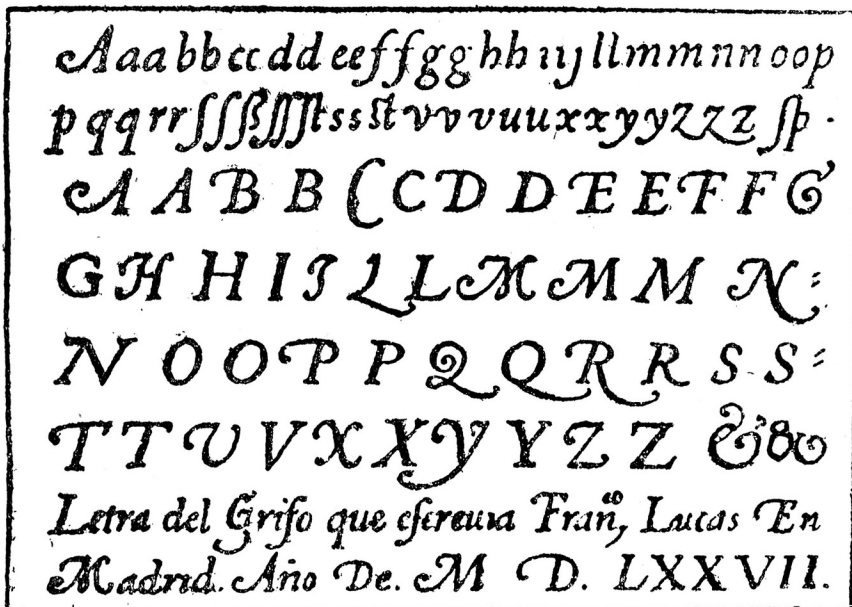 Aaabbccddeeffgghhııjllmmnnoop
pqqrrſſſßſſſtssstvvvuuxxyyzzz ſp .
A A B B C C D D E E F F G
G H H I J L L M M M N⸗
N O O P P Q Q R R S S⸗
T T U V X X Y Y Z Z & &
Letra del Grifo que eſcreuıa Frañᶜᵒ, Lucas En
Madrıd. Año De. M D. LXXVII.